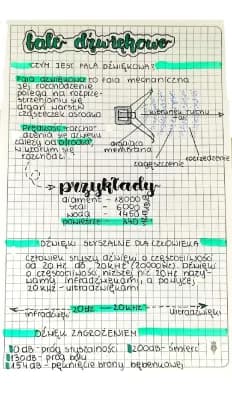 fale dźwiękowe
CZYM JEST FALA DŹWIĘKOWA?
Fala dźwiękowa to fala mechaniczna
jej rozchodzenie
polega na rozprze-
strzenianiu się
drgań warstw
cząsteczek ośrodka
kierunek ruchu
Prędkość rozcho-
dzenia się dźwięku
zależy od ośrodka
w którym się
rozchodzi
drgająca
membrana
zagęszczenie
rozrzedzenie
przykłady
diament - 18000
stal - 6000
woda - 1450
powietrze - 340
DŹWIĘKI SŁYSZALNE DLA CZŁOWIEKA
Człowiek słyszy dźwięki o częstotliwości
od 20 Hz do 20kHz (20000Hz). Dźwięki
o częstotliwości niższej niż 20 Hz nazy-
wamy infradźwiękami, a powyżej
20kHz - ultradźwiękami.
20Hz — 20kHz
infradźwięki
ultradźwięki
DŹWIĘK ZAGROŻENIEM
0 dB - próg słyszalności
200dB - śmierć
130dB - próg bólu
154dB - pęknięcie błony bębenkowej